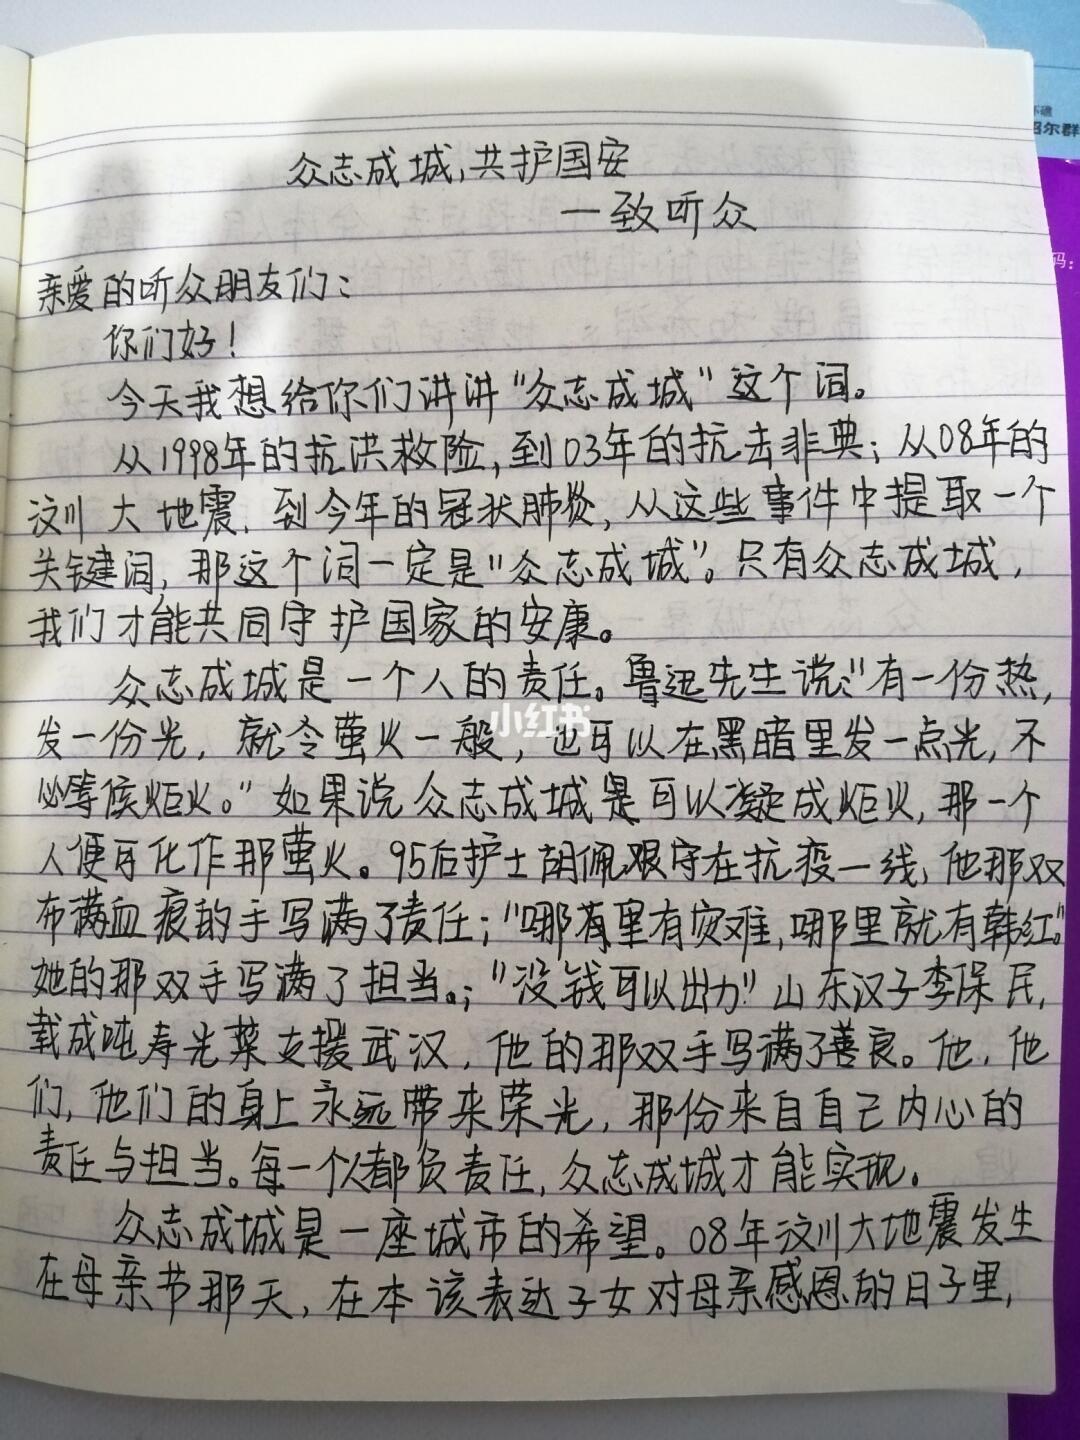 众志成城,共护国安
一致听众
亲爱的听众朋友们:
你们好!
今天我想给你们讲讲"众志成城"这个词。
从1998年的抗洪救险,到03年的抗击非典;从08年的
汶川大地震.到今年的冠状肺炎,从这些事件中提取一个
关键词,那这个词一定是"众志成城"。只有众志成城,
我们才能共同守护国家的安康。
众志成城是一个人的责任。鲁迅先生说:"有一份热,
发一份光,就令萤火一般,也可以在黑暗里发一点光,不
必等候炬火。"如果说众志成城是可以凝成炬火,那一个
人便可化作那萤火。95后护士胡佩艰守在抗疫一线,他那双
布满血痕的手写满了责任;"哪有里有灾难,哪里就有韩红。"
她的那双手写满了担当。;"没钱可以出力!"山东汉子李保民,
载成吨寿光菜支援武汉,他的那双手写满了善良。他.他
们,他们的身上永远带来荣光,那份来自自己内心的
责任与担当。每一个人都负责任,众志成城才能实现。
众志成城是一座城市的希望。08年汶川大地震发生
在母亲节那天,在本该表达子女对母亲感恩的日子里,
小红书
码:
尔群